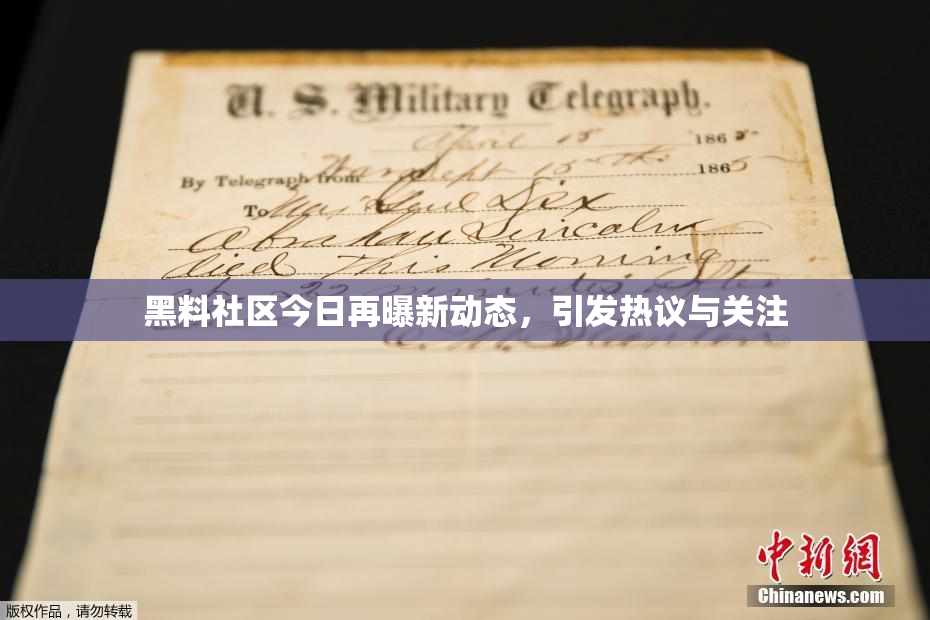 U. S. Military Telegraph.
April 15 1865
By Telegraph from War Dept 15th 1865
To Maj Genl Dix
Abraham Lincoln
died This Morning
22 minutes after
黑料社区今日再曝新动态，引发热议与关注
E. M. Stanton
中新網
Chinanews.com
版权作品，请勿转载